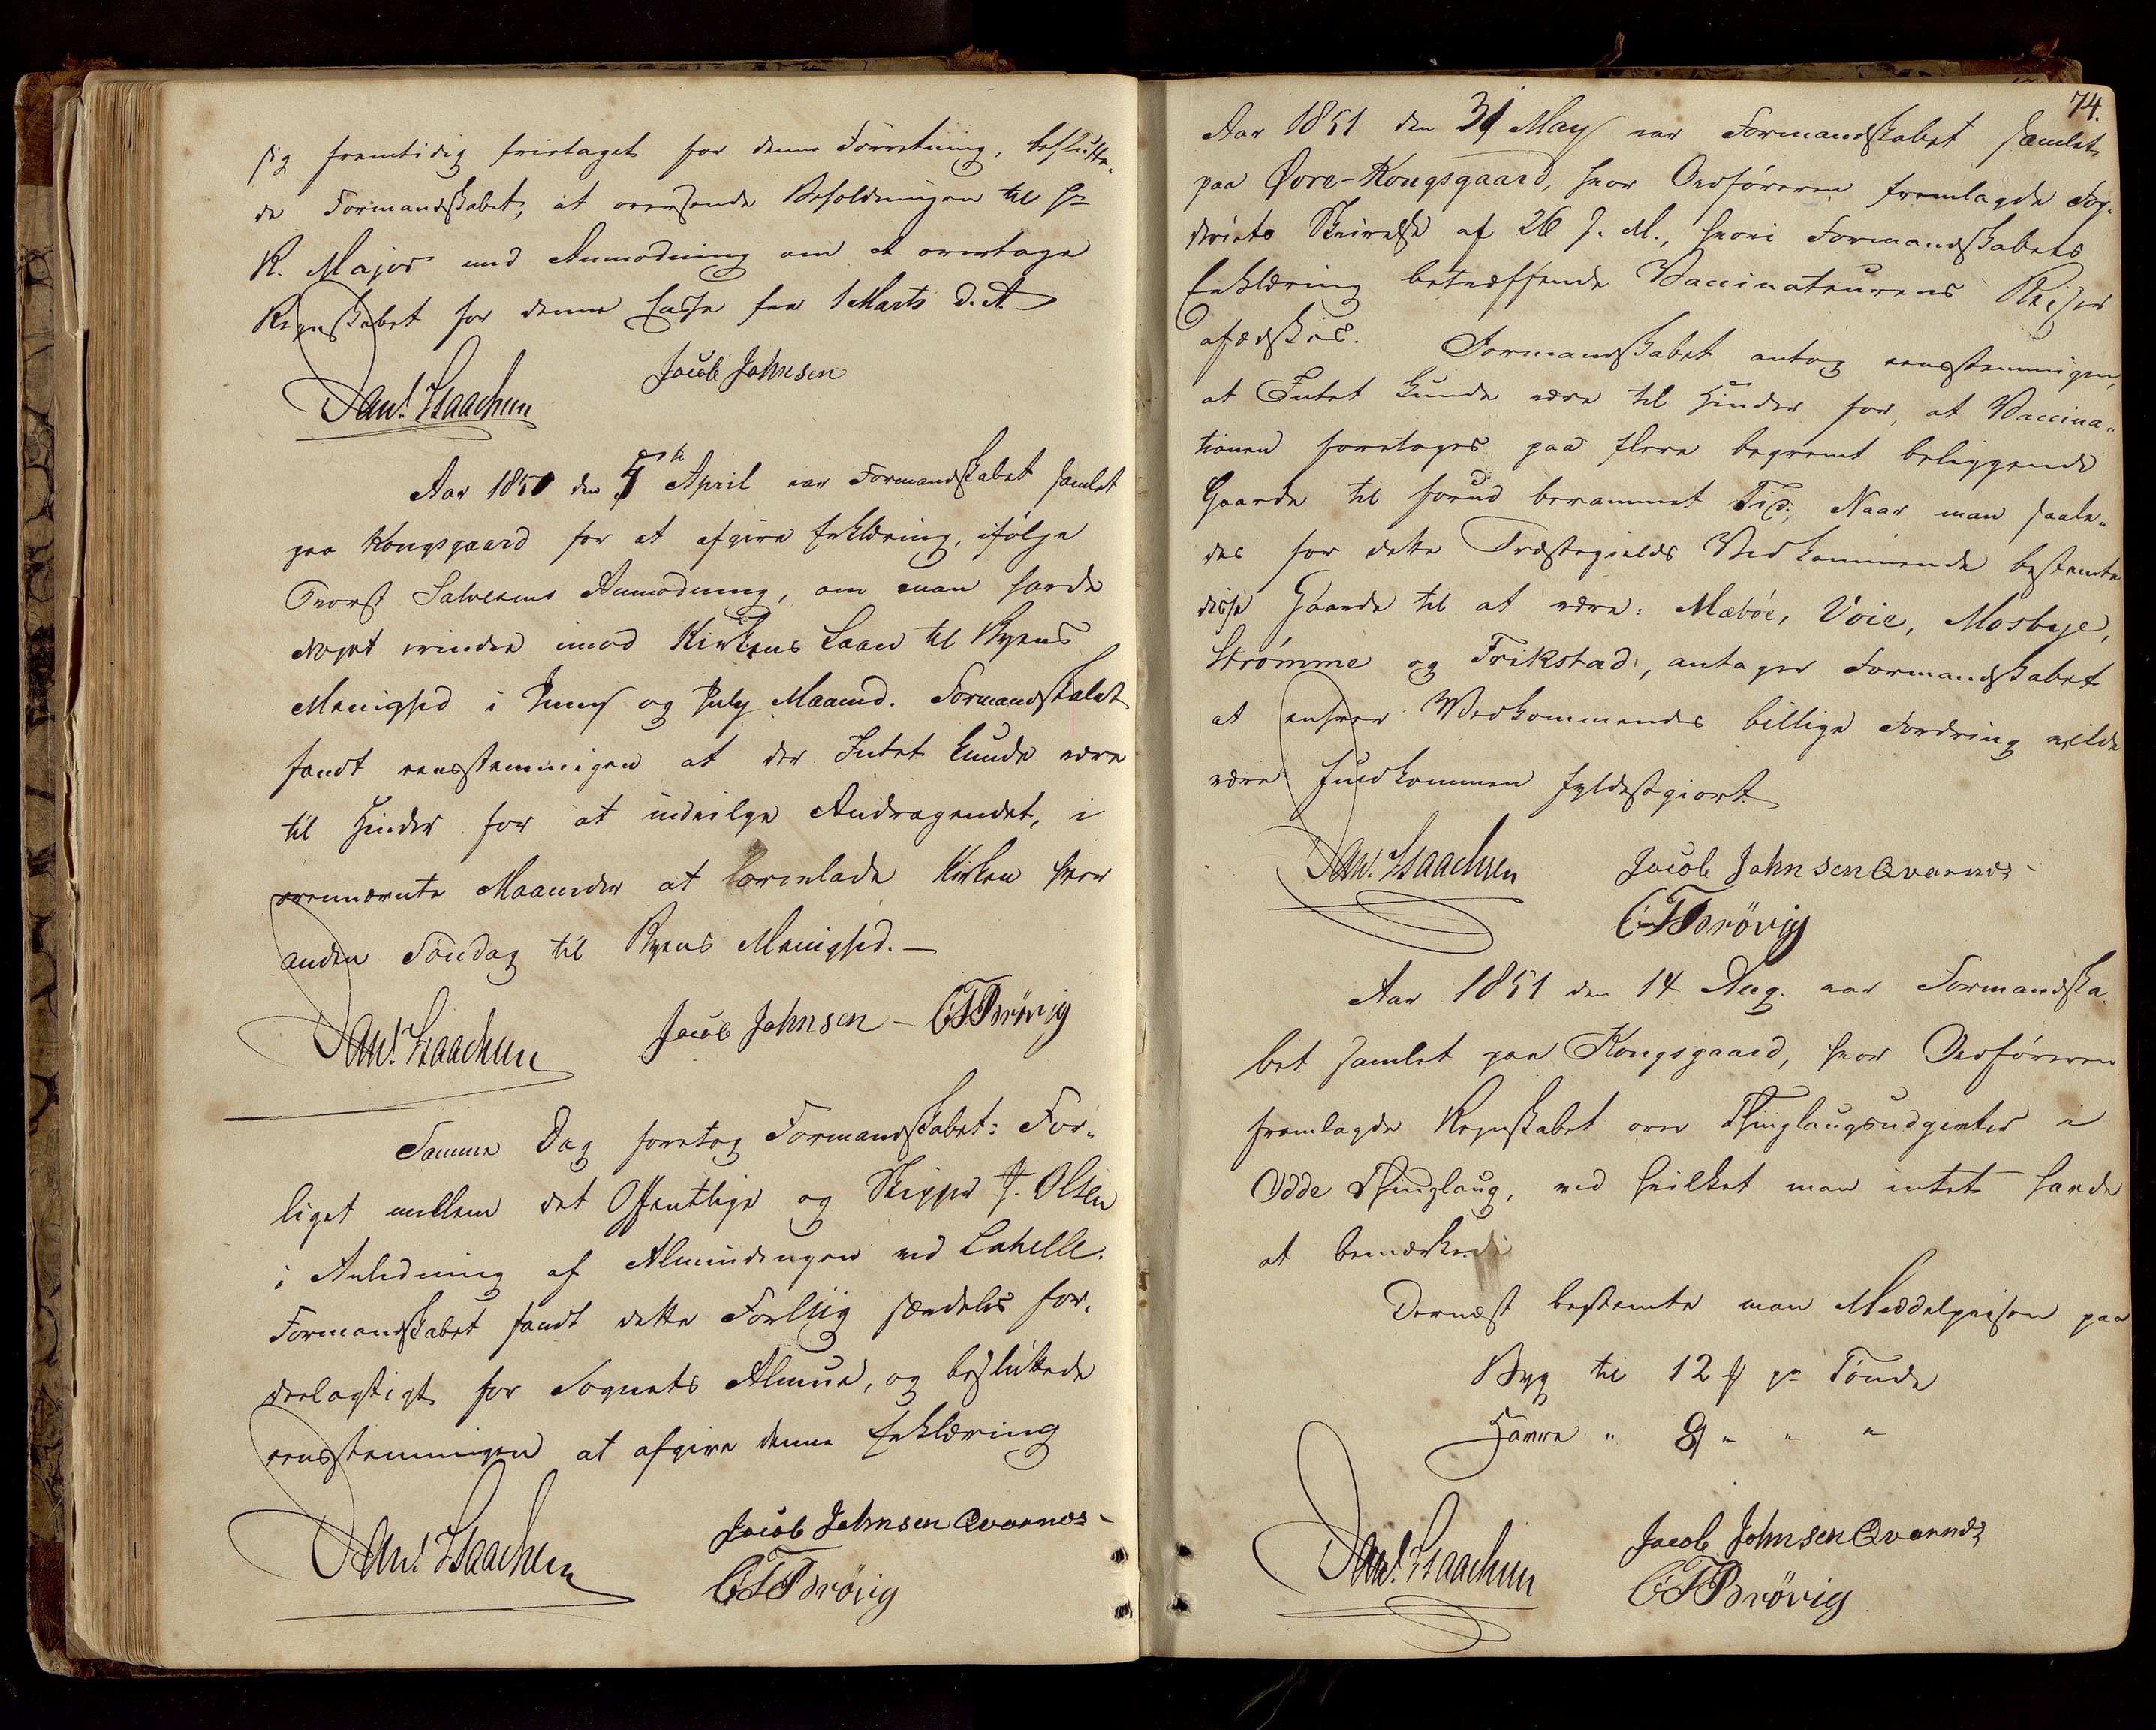 sig fremtidig fritaget for denne Forretning, beslutte-
de Formandskabet, at oversende Beholdningen til Hr
K. Major med Anmodning om at overtage
Regnskabet for denne Casse fra 1 Marts d. A.
Dan. Isaachsen Jacob Johnsen
Aar 1851 den 5te April var Formandskabet samlet
paa Kongsgaard for at afgive Erklæring, ifølge
Provst Salvesens Anmodning, om man havde
Noget imod Kirkens Laan til Byens
Menighed i Juny og July Maaned. Formandskabet
fandt eensstemmigen at der Intet kunde være
til Hinder for at indvilge Andragendet, i
ovennævnte Maaneder at overlade Kirken hver
anden Søndag til Byens Menighed. —
Dan. Isaachsen Jacob Johnsen – CT Brøvig
Samme Dag foretog Formandskabet: For-
liget mellem det Offentlige og Skipper J. Olsen
i Anledning af Almindingen ved Lahelle.
Formandskabet fandt dette Forliig særdeles for-
deelagtigt for Sognets Almue, og besluttede
eensstemmigen at afgive denne Erklæring
Dan. Isaachsen Jacob Johnsen Qvarnes –
CT Brøvig
74.
Aar 1851 den 31 May var Formandskabet samlet
paa Øvre-Kongsgaard, hvor Ordføreren fremlagde Fog-
deriets Skrivelse af 26 f. M., hvori Formandskabets
Erklæring betræffende Vaccinateurens Reiser
afædskes. Formandskabet antog eensstemmigen,
at Intet kunde være til Hinder for, at Vaccina-
tionen foretoges paa flere beqvemt beliggende
Gaarde til forud berammet Tid; Naar man saale-
des for dette Præstegields Vedkommende bestemte
disse Gaarde til at være: Mæbøe, Voie, Mosbye,
Strømme og Frikstad, antager Formandskabet
at enhver Vedkommendes billige Fordring vilde
være fuldkommen fyldestgiort.
Dan. Isaachsen Jacob Johnsen Qvarnes –
CT Brøvig
Aar 1851 den 14 Aug. var Formandska-
bet samlet paa Kongsgaard, hvor Ordføreren
fremlagde Regnskabet over Thinglaugsudgivter i
Odde Thinglaug, ved hvilket man intet havde
at bemærke.
Dernæst bestemte man Middelprisen paa
Byg til 12 pr Tønde
Havre " 8 " " "
Dan. Isaachsen Jacob Johnsen Qvarnes
CT Brøvig